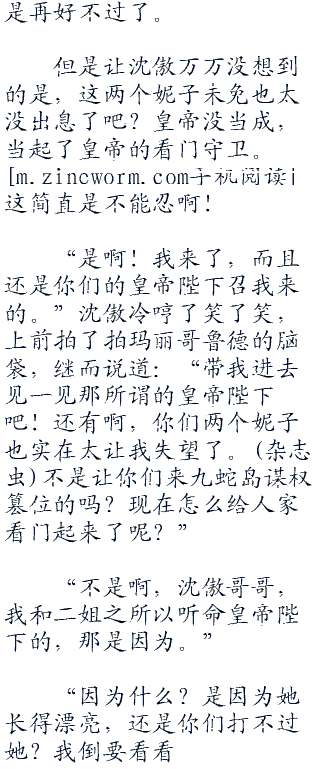 是再好不过了。
但是让沈傲万万没想到
的是，这两个妮子未免也太
没出息了吧？皇帝没当成，
当起了皇帝的看门守卫。
[m.zincworm.com手机阅读]
这简直是不能忍啊！
“是啊！我来了，而且
还是你们的皇帝陛下召我来
的。”沈傲冷哼了笑了笑，
上前拍了拍玛丽哥鲁德的脑
袋，继而说道：“带我进去
见一见那所谓的皇帝陛下
吧！还有啊，你们两个妮子
也实在太让我失望了。(杂志
虫)不是让你们来九蛇岛谋权
篡位的吗？现在怎么给人家
看门起来了呢？”
“不是啊，沈傲哥哥，
我和二姐之所以听命皇帝陛
下的，那是因为。”
“因为什么？是因为她
长得漂亮，还是你们打不过
她？我倒要看看